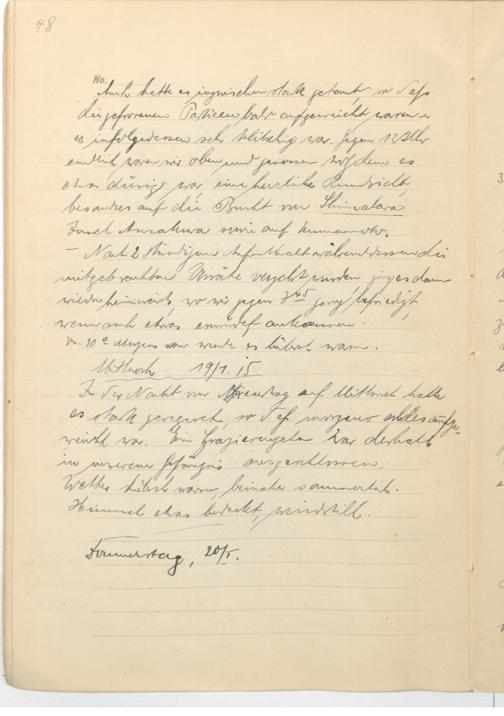 48
No.
Auch hatte es inzwischen stark getaut, so daß
die gefrorenen Partieen bald aufgeweicht waren u
es infolgedessen sehr glitschig war. Gegen 12 Uhr
endlich waren wir oben und genossen trotzdem es
etwas diesig war eine herrliche Rundsicht,
besonders auf die Bucht von Shimabara
Insel Amakusa sowie auf Kumamoto.
– Nach 2 stündigem Aufenthalt währenddessen die
mitgebrachten Vorräte verzehrt wurden, ging es dann
wieder heimwärts, wo wir gegen 3 45 ganz befriedigt,
wenn auch etwas ermüdet ankamen.
Von 10 e Morgens an wurde es hübsch warm.
Mittwoch 19/1. 15
In der Nacht von Dienstag auf Mittwoch hatte
es stark geregnet, so daß morgens alles aufge-
weicht war. Ein Spazierengehen war deshalb
in unserem Gefängnis ausgeschlossen.
Wetter hübsch warm, beinahe sommerlich.
Himmel etwas bedeckt, windstill.
Donnerstag, 20/1.